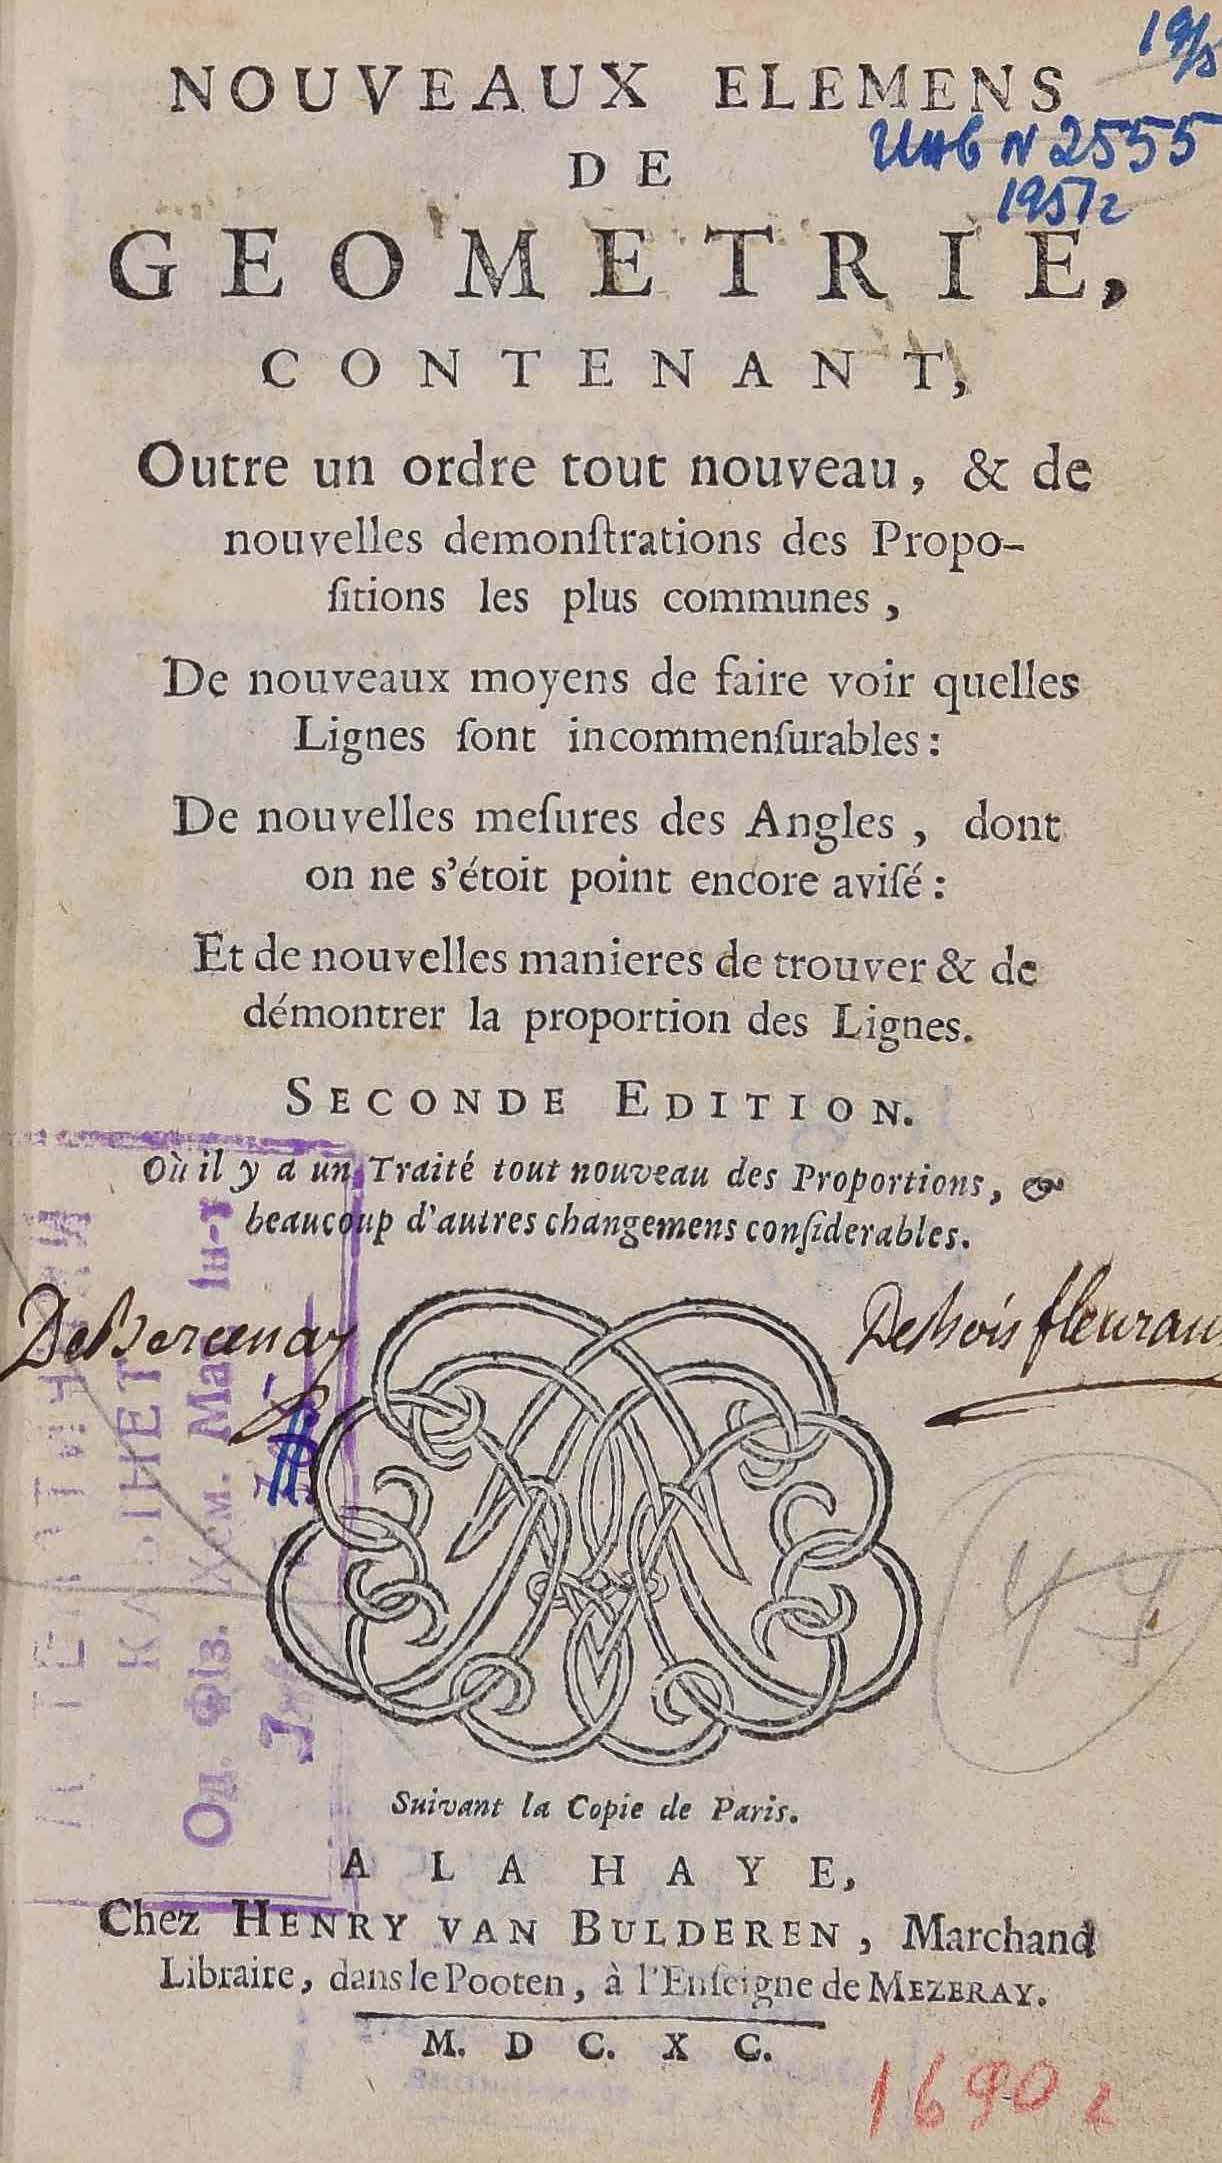 NOUVEAUX ELEMENS
Инв N 2555
1951г
DE
GEOMETRIE,
CONTENANT,
Outre un ordre tout nouveau, & de
nouvelles demonſtrations des Propo-
ſitions les plus communes,
De nouveaux moyens de faire voir quelles
Lignes ſont incommenſurables:
De nouvelles meſures des Angles, dont
on ne s'étoit point encore aviſé:
Et de nouvelles manieres de trouver & de
démontrer la proportion des Lignes.
SECONDE EDITION.
Où il y a un Traité tout nouveau des Proportions, &
beaucoup d'autres changemens conſiderables.
КАБІНЕТ
Од. Фіз.
Suivant la Copie de Paris.
A LA HAYE,
Chez HENRY VAN BULDEREN, Marchand
Libraire, dans le Pooten, à l'Enſeigne de MEZERAY.
M. DC. XC.
1690 г